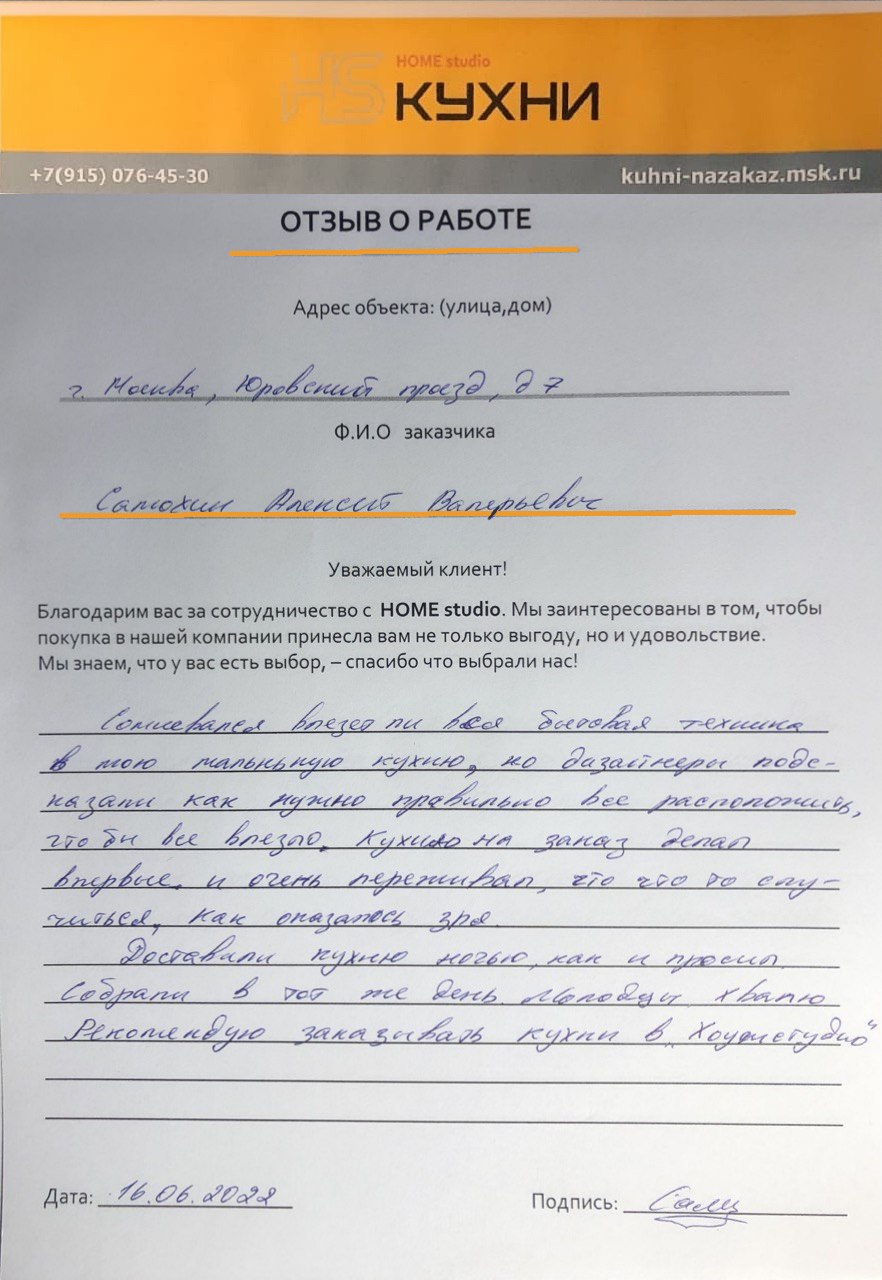 HS
HOME studio
КУХНИ
+7(915) 076-45-30
kuhni-nazakaz.msk.ru
ОТЗЫВ О РАБОТЕ
Адрес объекта: (улица,дом)
г. Москва, Юровский проезд, д 7
Ф.И.О заказчика
Самохин Алексей Валерьевич
Уважаемый клиент!
Благодарим вас за сотрудничество с HOME studio. Мы заинтересованы в том, чтобы
покупка в нашей компании принесла вам не только выгоду, но и удовольствие.
Мы знаем, что у вас есть выбор, – спасибо что выбрали нас!
Сомневался влезет ли вся бытовая техника
в мою мальньную кухню, но дизайнеры подс-
казали как нужно правильно все расположить,
что бы все влезло. Кухню на заказ делал
впервые, и очень переживал, что что то слу-
читься, Как оказалось зря.
Доставили кухню ночью, как и просил.
Собрали в тот же день. Молодцы хвалю
Рекомендую заказывать кухни в „Хоумстудио“
Дата: 16.06.2022
Подпись: